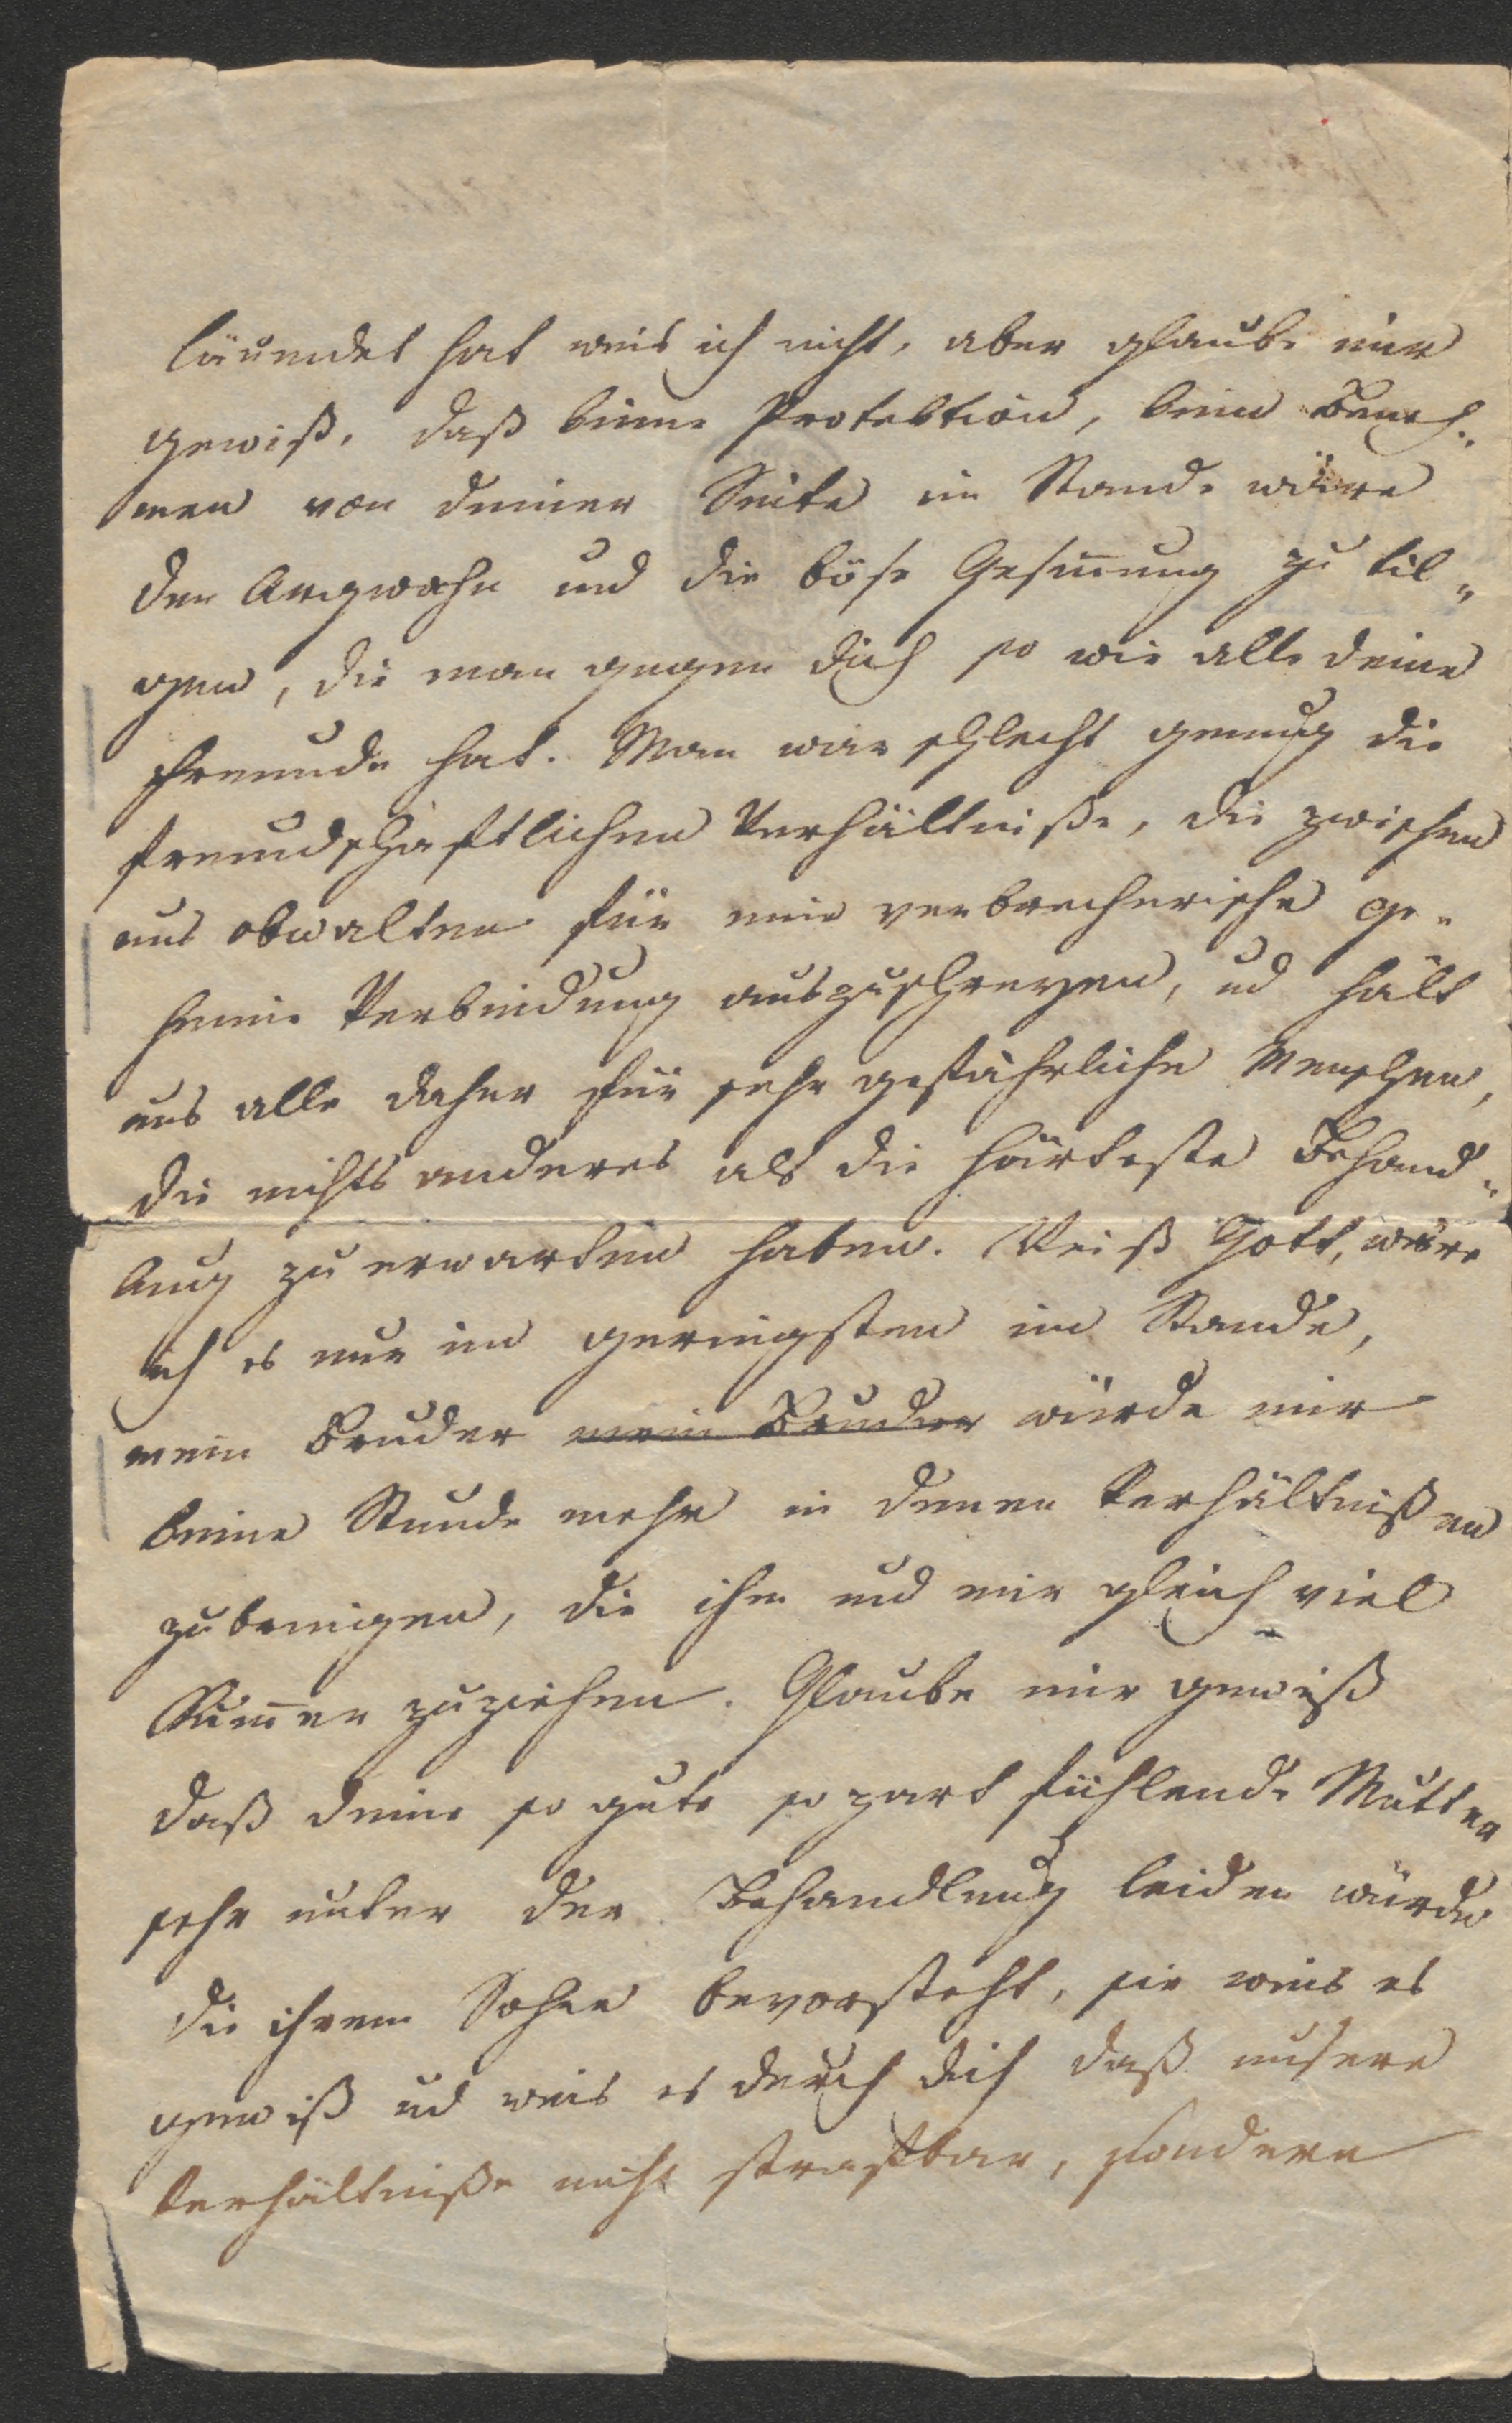 läumdet hat weis ich nicht, aber glaube mir
gewiß, daß keine Protektion, kein Beneh„
men von deiner Seite im Stande wäre
den Argwohn und die böse Gesinnung zu til„
gen, die man gegen dich so wie alle deine
Freunde hat. Man war schlecht genug die
freundschaftlichen Verhältniße, die zwischen
uns obwalten für eine verbrecherische ge„
heime Verbindung auszuschreyen, ud hält
uns alle daher für sehr gefährliche Menschen,
die nichts anderes als die härteste Behand„
lung zu erwarten haben. Weiß Gott, wäre
ich es nur im geringsten im Stande,
mein Bruder mein Bruder würde mir
keine Stunde mehr in denen Verhältnißen
zubringen, die ihm und mir gleich viel
Kum̅er zuziehen. Glaube mir gewiß
daß deine so gute so zart fühlende Mutter
sehr unter der Behandlung leiden würde
die ihrem Sohne bevorsteht, sie weis es
gewiß ud weis es durch dich daß unsere
Verhältniße nicht strafbar, sondern